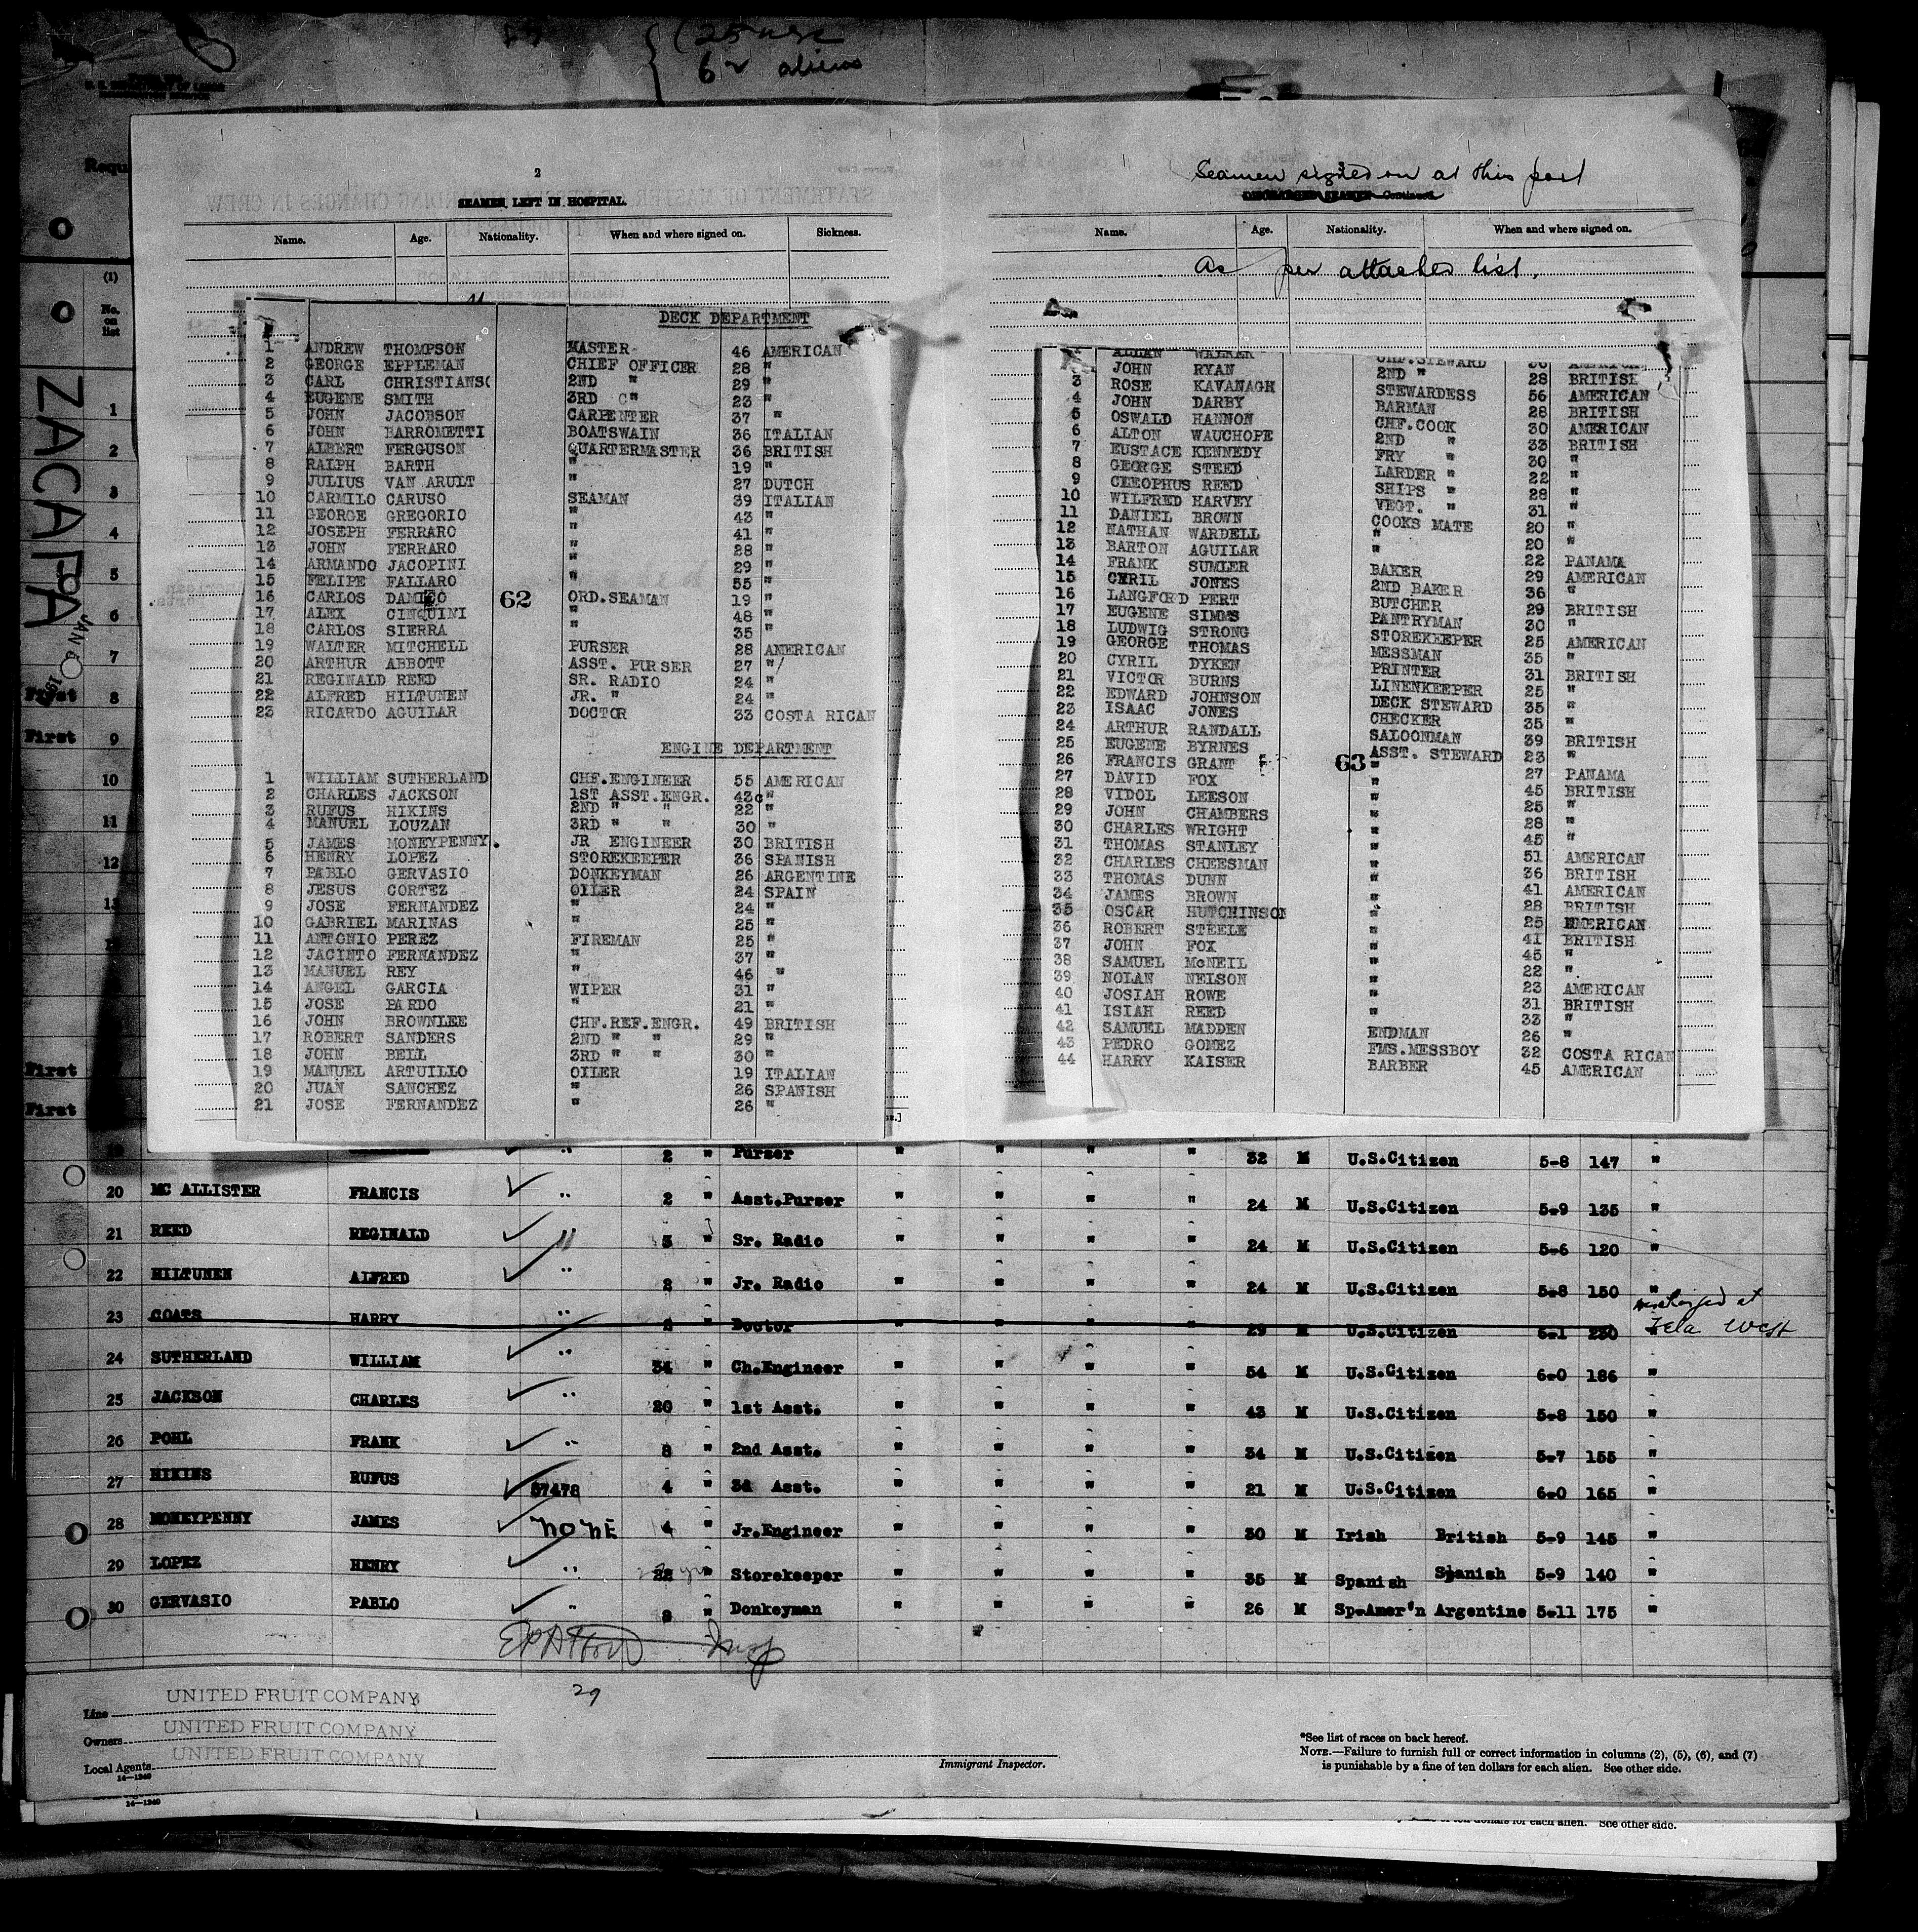 6 aliens
2
SEAMEN LEFT IN HOSPITAL.
Name. Age. Nationality. When and where signed on. Sickness.
DECK DEPARTMENT
1 ANDREW THOMPSON MASTER 46 AMERICAN
2 GEORGE EPPLEMAN CHIEF OFFICER 28 "
3 CARL CHRISTIANS 2ND " 29 "
4 EUGENE SMITH 3RD " 23 "
5 JOHN JACOBSON CARPENTER 37 "
6 JOHN BARROMETTI BOATSWAIN 36 ITALIAN
7 ALBERT FERGUSON QUARTERMASTER 36 BRITISH
8 RALPH BARTH " 19 "
9 JULIUS VAN ARULT " 27 DUTCH
10 CARMILO CARUSO SEAMAN 39 ITALIAN
11 GEORGE GREGORIO " 43 "
12 JOSEPH FERRARO " 41 "
13 JOHN FERRARO " 28 "
14 ARMANDO JACOPINI " 29 "
15 FELIPE FALLARO " 55 "
16 CARLOS DAMICO 62 ORD.SEAMAN 19 "
17 ALEX CINQUINI " 48 "
18 CARLOS SIERRA " 35 "
19 WALTER MITCHELL PURSER 28 AMERICAN
20 ARTHUR ABBOTT ASST. PURSER 27 "/
21 REGINALD REED SR. RADIO 24 "
22 ALFRED HILTUNEN JR. " 24 "
23 RICARDO AGUILAR DOCTOR 33 COSTA RICAN
ENGINE DEPARTMENT
1 WILLIAM SUTHERLAND CHF.ENGINEER 55 AMERICAN
2 CHARLES JACKSON 1ST ASST.ENGR. 43 "
3 RUFUS HIKINS 2ND " " 22 "
4 MANUEL LOUZAN 3RD " " 30 "
5 JAMES MONEYPENNY. JR ENGINEER 30 BRITISH
6 HENRY LOPEZ STOREKEEPER 36 SPANISH
7 PABLO GERVASIO DONKEYMAN 26 ARGENTINE
8 JESUS CORTEZ OILER 24 SPAIN
9 JOSE FERNANDEZ " 24 "
10 GABRIEL MARINAS " 25 "
11 ANTONIO PEREZ FIREMAN 25 "
12 JACINTO FERNANDEZ " 37 "
13 MANUEL REY " 46 "
14 ANGEL GARCIA WIPER 31 "
15 JOSE PARDO " 21 "
16 JOHN BROWNLEE CHF.REF.ENGR. 49 BRITISH
17 ROBERT SANDERS 2ND " " 29 "
18 JOHN BELL 3RD " " 30 "
19 MANUEL ARTUILLO OILER 19 ITALIAN
20 JUAN SANCHEZ " 26 SPANISH
21 JOSE FERNANDEZ " 26 "
3
Seamen signed on at this port
DISCHARGED SEAMEN—Continued
Name. Age. Nationality. When and where signed on.
As per attached list.
ALLAN WALKER CHF.STEWARD AMERICAN
JOHN RYAN 2ND " 28 BRITISH
3 ROSE KAVANAGH STEWARDESS 56 AMERICAN
4 JOHN DARBY BARMAN 28 BRITISH
5 OSWALD HANNON CHF.COOK 30 AMERICAN
6 ALTON WAUCHOPE 2ND " 33 BRITISH
7 EUSTACE KENNEDY FRY " 30 "
8 GEORGE STEED LARDER " 22 "
9 CLEOPHUS REED SHIPS " 28 "
10 WILFRED HARVEY VEGT. " 31 "
11 DANIEL BROWN COOKS MATE 20 "
12 NATHAN WARDELL " 20 "
13 BARTON AGUILAR " 22 PANAMA
14 FRANK SUMLER BAKER 29 AMERICAN
15 CYRIL JONES 2ND BAKER 36 "
16 LANGFORD PERT BUTCHER 29 BRITISH
17 EUGENE SIMMS PANTRYMAN 30 "
18 LUDWIG STRONG STOREKEEPER 25 AMERICAN
19 GEORGE THOMAS MESSMAN 35 "
20 CYRIL DYKEN PRINTER 31 BRITISH
21 VICTOR BURNS LINENKEEPER 25 "
22 EDWARD JOHNSON DECK STEWARD 35 "
23 ISAAC JONES CHECKER 35 "
24 ARTHUR RANDALL SALOONMAN 39 BRITISH
25 EUGENE BYRNES ASST. STEWARD 23 "
26 FRANCIS GRANT 63 " 27 PANAMA
27 DAVID FOX " 45 BRITISH
28 VIDOL LEESON " 25 "
29 JOHN CHAMBERS " 28 "
30 CHARLES WRIGHT " 45 "
31 THOMAS STANLEY " 51 AMERICAN
32 CHARLES CHEESMAN " 36 BRITISH
33 THOMAS DUNN " 41 AMERICAN
34 JAMES BROWN " 28 BRITISH
35 OSCAR HUTCHINSON " 25 AMERICAN
36 ROBERT STEELE " 41 BRITISH
37 JOHN FOX " 45 "
38 SAMUEL McNEIL " 22 "
39 NOLAN NELSON " 23 AMERICAN
40 JOSIAH ROWE " 31 BRITISH
41 ISIAH REED " 33 "
42 SAMUEL MADDEN ENDMAN 26 "
43 PEDRO GOMEZ FMS.MESSBOY 32 COSTA RICAN
44 HARRY KAISER BARBER 45 AMERICAN
Requ
(1)
No. on list
ZACAPA
JAN
1
2
3
4
5
6
7
First 8
First 9
10
11
12
13
First
First
19 2 " Purser " " " " 32 M U.S.Citizen 5-8 147 "
20 MC ALLISTER FRANCIS " 2 " Asst.Purser " " " " 24 M U.S.Citizen 5-9 135 "
21 REED REGINALD " 3 " Sr. Radio " " " " 24 M U.S.Citizen 5-6 120 "
22 HILTUNEN ALFRED " 2 " Jr. Radio " " " " 24 M U.S.Citizen 5-8 150 "
23 COATS HARRY " Doctor 29 M U.S.Citizen 6-1 230 Discharged at Tela West
24 SUTHERLAND WILLIAM " 34 " Ch.Engineer " " " " 54 M U.S.Citizen 6-0 186 "
25 JACKSON CHARLES " 20 " 1st Asst. " " " " 43 M U.S.Citizen 5-8 150 "
26 POHL FRANK " 8 " 2nd Asst. " " " " 34 M U.S.Citizen 5-7 155 "
27 HIKINS RUFUS 57478 4 " 3d Asst. " " " " 21 M U.S.Citizen 6-0 165 "
28 MONEYPENNY JAMES NONE 4 " Jr.Engineer " " " " 30 M Irish British 5-9 145 "
29 LOPEZ HENRY " 22 " Storekeeper " " " " 35 M Spanish Spanish 5-9 140 "
30 GERVASIO PABLO " " Donkeyman " " " " 26 M Sp-Amer'n Argentine 5-11 175 "
Insp
29
Line UNITED FRUIT COMPANY
Owners UNITED FRUIT COMPANY
Local Agents UNITED FRUIT COMPANY
14—1240
Immigrant Inspector.
*See list of races on back hereof.
NOTE.—Failure to furnish full or correct information in columns (2), (5), (6), and (7)
is punishable by a fine of ten dollars for each alien. See other side.
14—1240
See other side.